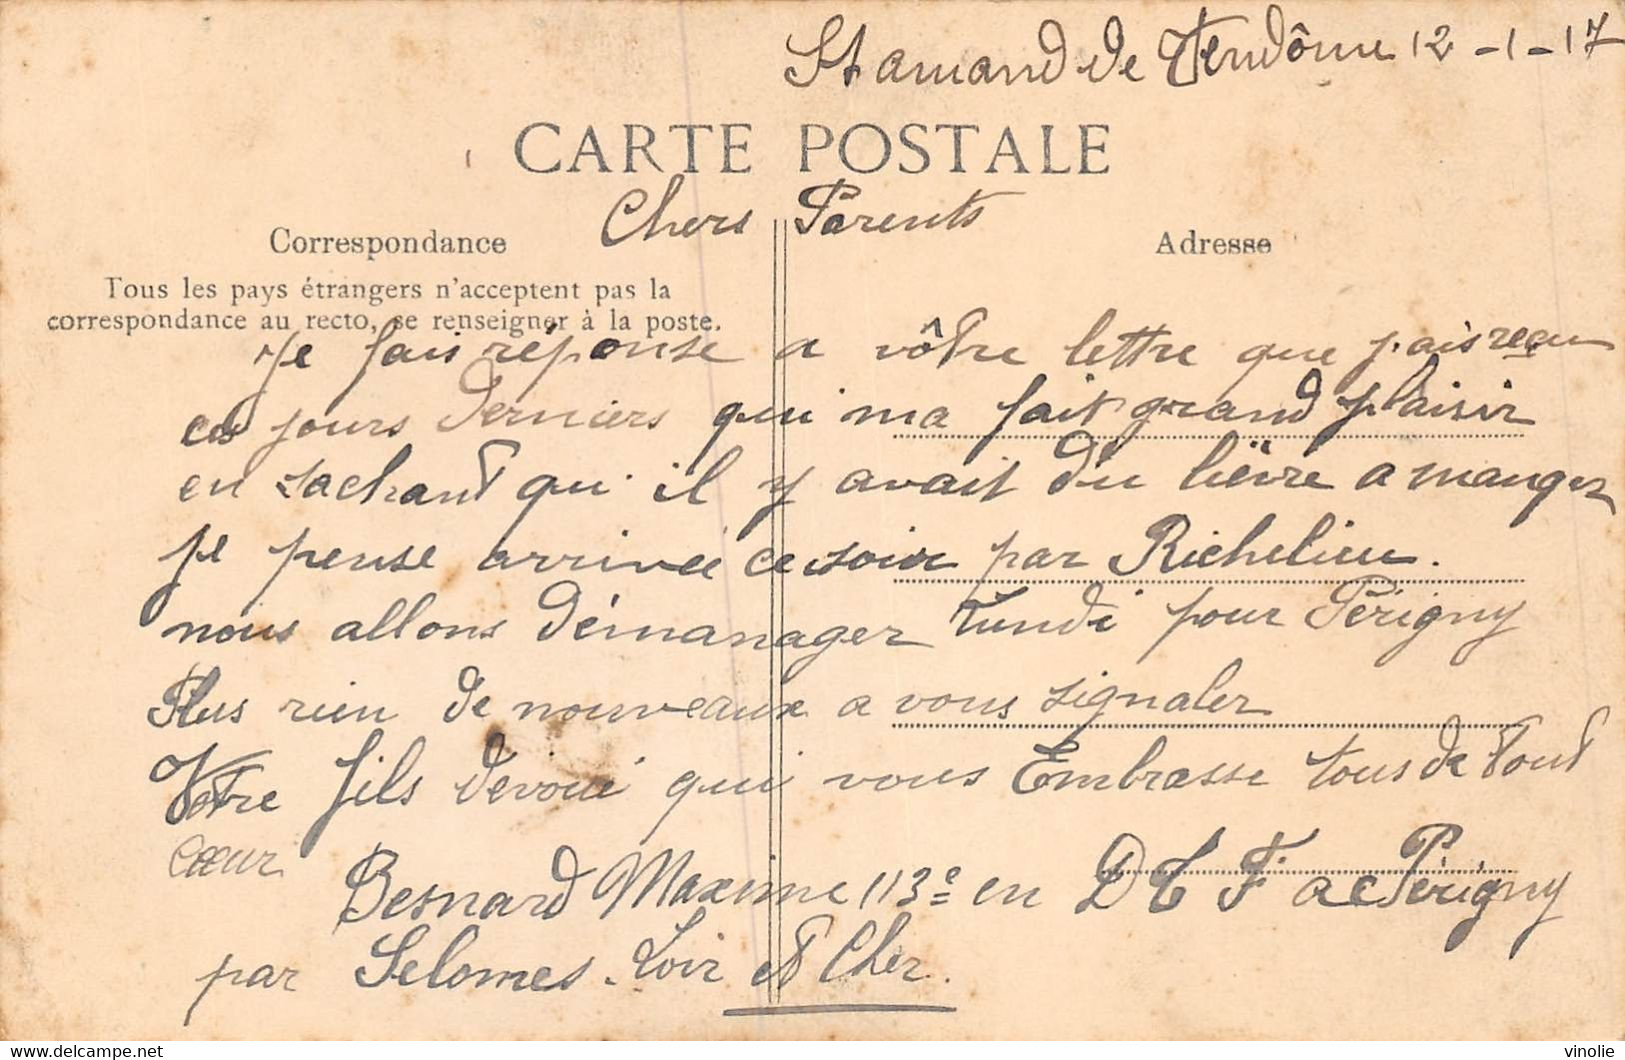 St amand de Vendôme 12-1-17
CARTE POSTALE
Chers Parents
Correspondance
Adresse
Tous les pays étrangers n'acceptent pas la
correspondance au recto, se renseigner à la poste.
Je fais réponse a vôtre lettre que j'ais reçu
ces jours derniers qui ma fait grand plaisir
en sachant qui il y avait du lièvre a manger
je pense arrivée ce soir par Richelieu.
nous allons démanager lundi pour Périgny
Plus rien de nouveaux a vous signaler
Votre fils devoué qui vous Embrasse tous de tout
Cœur
Besnard Maxime 113e en D T F a Périgny
par Selomes. Loir et Cher.
vinolie